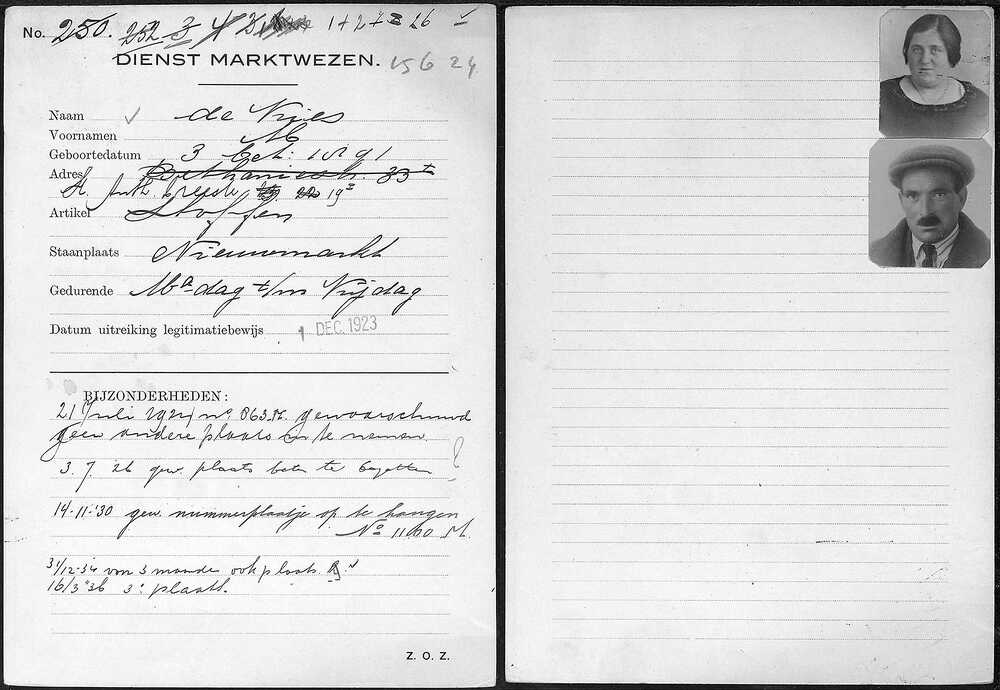 No. 250. 252 3 4 1+2+3 26
DIENST MARKTWEZEN. 15 6 24
Naam de Vries
Voornamen M
Geboortedatum 3 Oct: 1891
Adres Bethaniestr. 33
St. Anth. breestr 19
Artikel Stoffen
Staanplaats Nieuwmarkt
Gedurende Madag t/m Vrijdag
Datum uitreiking legitimatiebewijs 1 DEC. 1923
BIJZONDERHEDEN:
21 Juli 1924 no. 863 M. gewaarschuwd
geen andere plaats in te nemen.
3. 7. 26 gew. plaats te bezetten
14-11-'30 gew. nummerplaatje op te hangen
No 11000 M.
31/12-34 voor 3 maanden ook plaats
16/3 '36 3e plaats.
Z. O. Z.